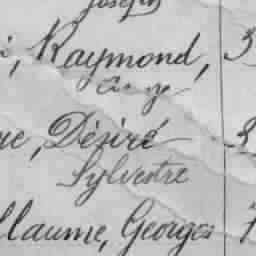 Joseph
i, Raymond, 3
ue, Désiré 3
Sylvestre
llaume, Georges 7